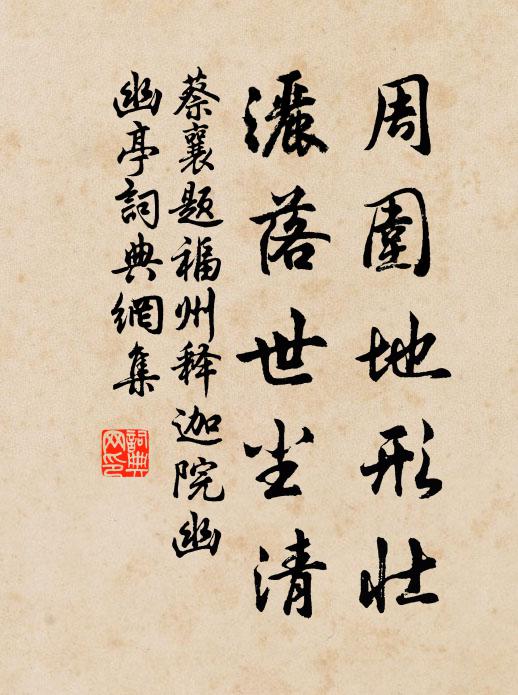 周圍地形壯
灑落世尘清
蔡襄题福州释迦院幽
幽亭詞典網集
詞典
网印